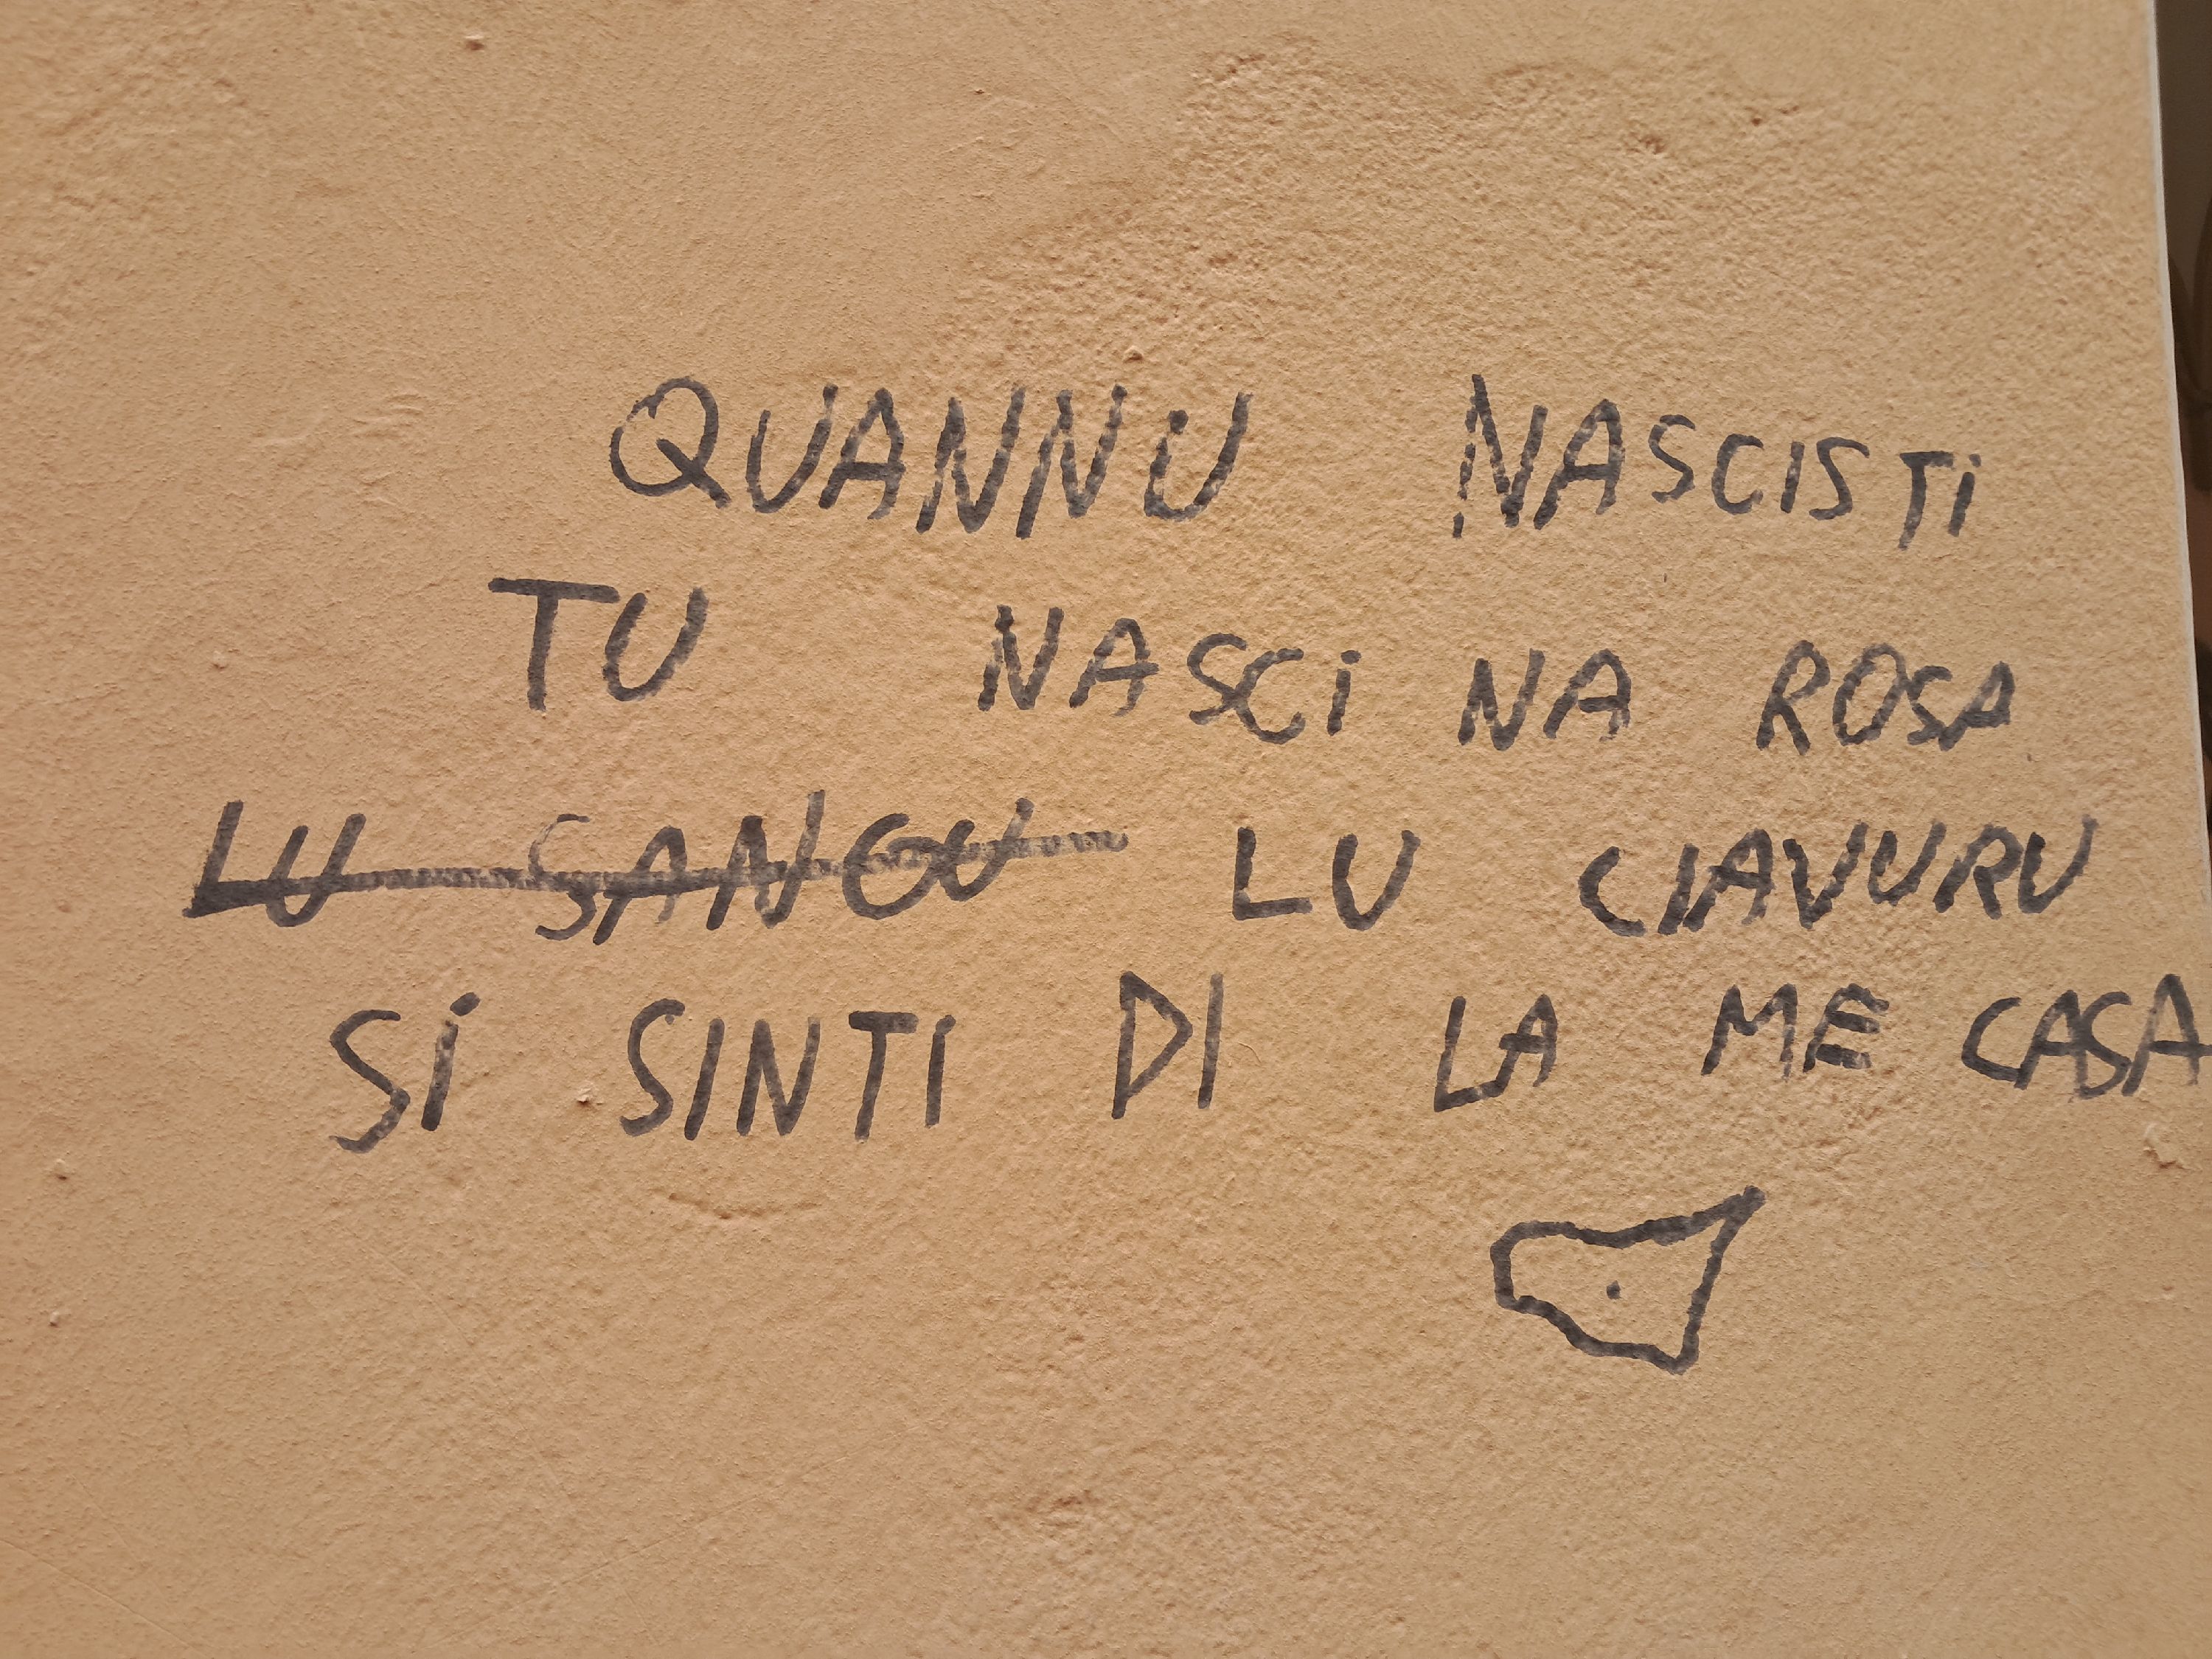 QUANNU NASCISTI
TU NASCI NA ROSA
LU SANGU LU CIAVURU
SI SINTI DI LA ME CASA